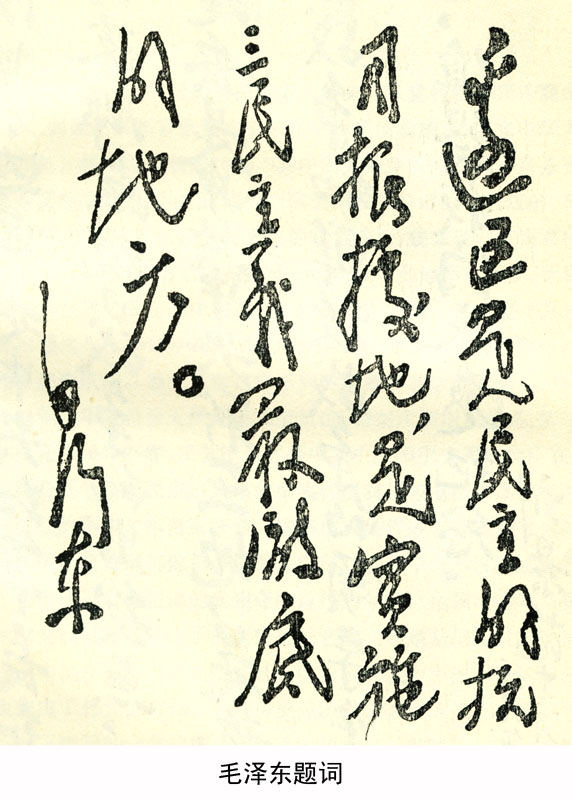 边区是人民主的抗
日根据地,是實施
三民主義最徹底
的地方。
毛澤东
毛泽东题词